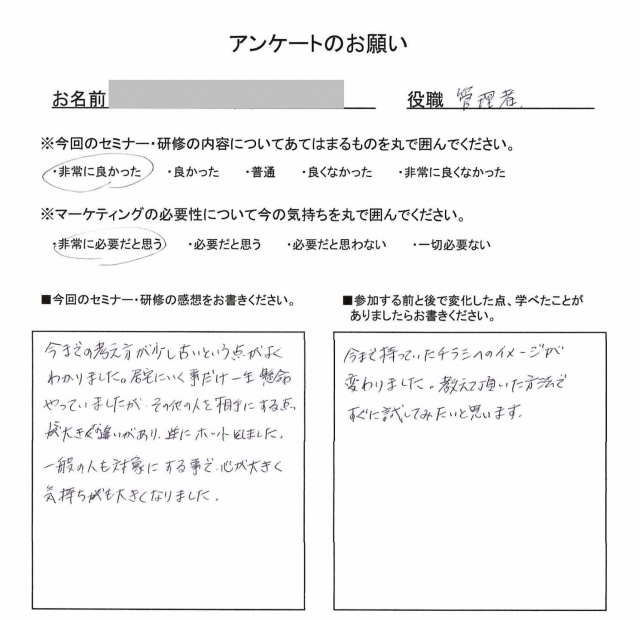 アンケートのお願い
お名前
役職 管理者.
※今回のセミナー・研修の内容についてあてはまるものを丸で囲んでください。
・非常に良かった ・良かった ・普通 ・良くなかった ・非常に良くなかった
※マーケティングの必要性について今の気持ちを丸で囲んでください。
・非常に必要だと思う ・必要だと思う ・必要だと思わない ・一切必要ない
■今回のセミナー・研修の感想をお書きください。
今までの考え方が少し古いという点がよく
わかりました。居宅にいく事だけ一生懸命
やっていましたが、その他の人を相手にする点
大きく違いがあり、逆にホットしました。
一般の人も対象にする事で、心が大きく
気持ちも大きくなりました。
■参加する前と後で変化した点、学べたことが
ありましたらお書きください。
今まで持っていたチラシへのイメージが
変わりました。教えて頂いた方法で
すぐに試してみたいと思います。